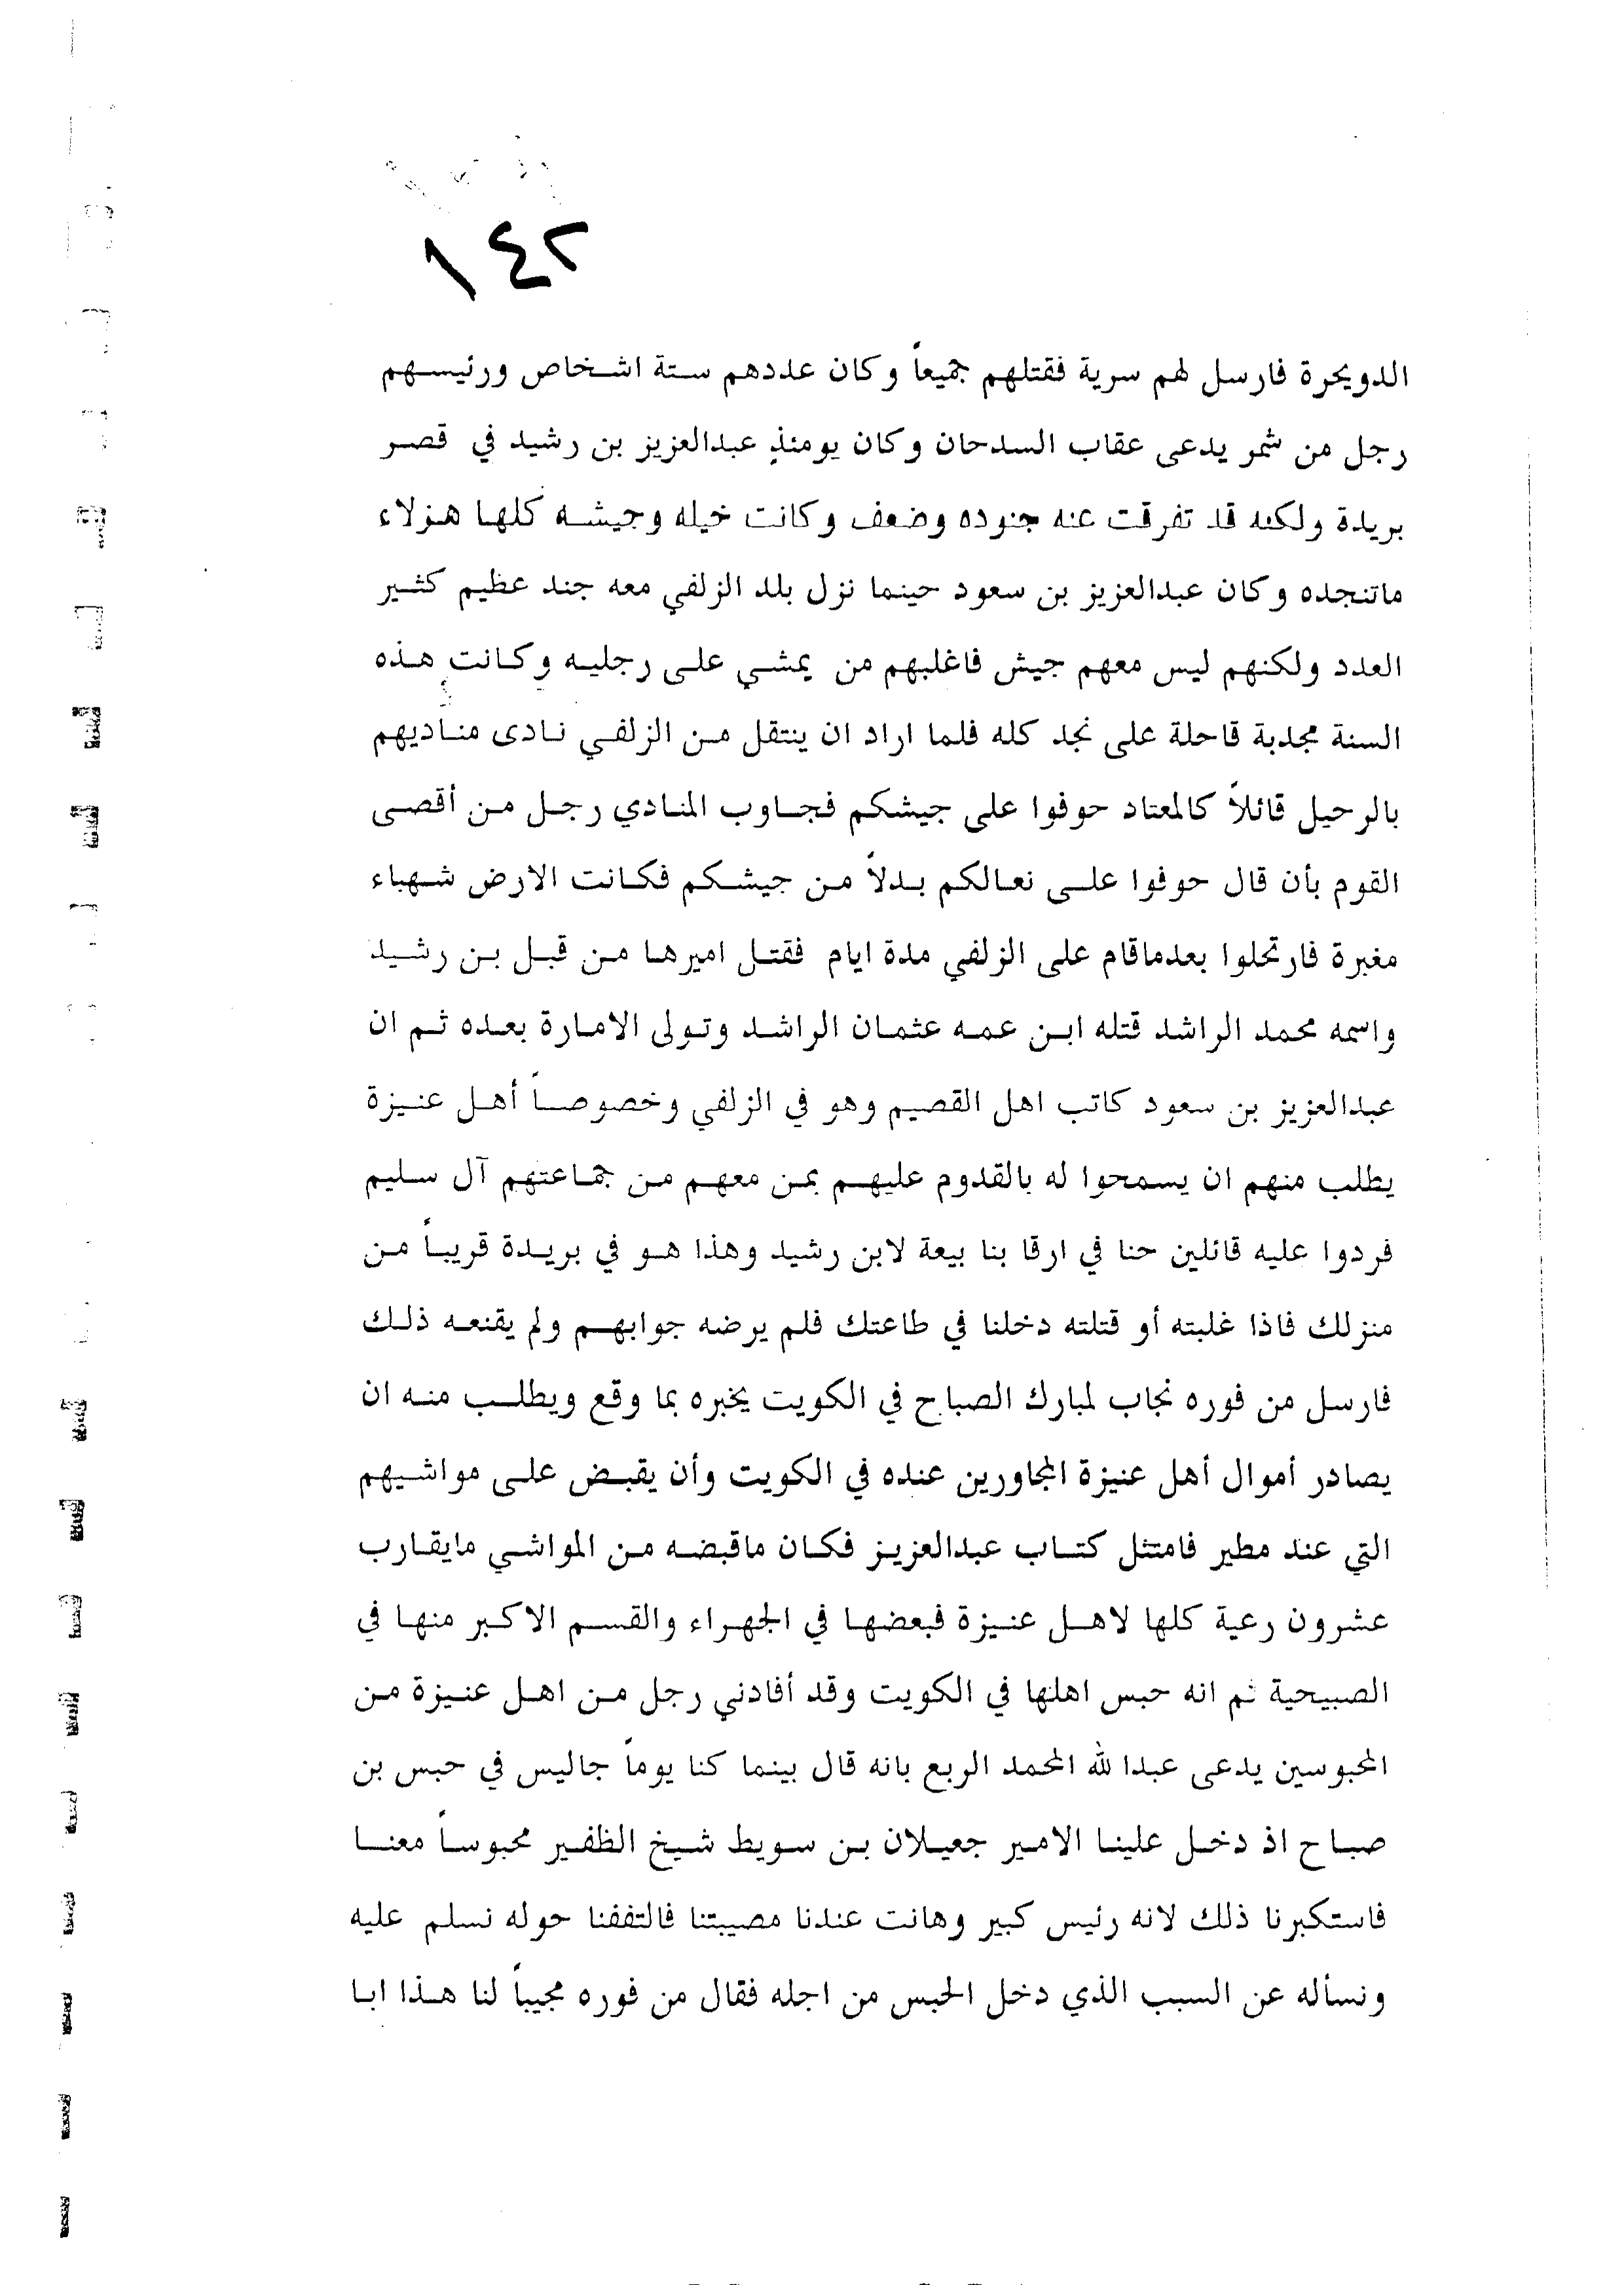 ١٤٢
الدويحرة فارسل لهم سرية فقتلهم جميعاً وكان عددهم ستة اشخاص ورئيسهم
رجل من شمر يدعى عقاب السدحان وكان يومئذٍ عبدالعزيز بن رشيد في قصر
بريدة ولكنه قد تفرقت عنه جنوده وضعف وكانت خيله وجيشه كلها هزلاء
ماتنجده وكان عبدالعزيز بن سعود حينما نزل بلد الزلفي معه جند عظيم كثير
العدد ولكنهم ليس معهم جيش فاغلبهم من يمشي على رجليه وكانت هذه
السنة مجدبة قاحلة على نجد كله فلما اراد ان ينتقل من الزلفي نادى مناديهم
بالرحيل قائلاً كالمعتاد حوفوا على جيشكم فجاوب المنادي رجل من أقصى
القوم بأن قال حوفوا على نعالكم بدلاً من جيشكم فكانت الارض شهباء
مغبرة فارتحلوا بعدماقام على الزلفي مدة ايام فقتل اميرها من قبل بن رشيد
واسمه محمد الراشد قتله ابن عمه عثمان الراشد وتولى الامارة بعده ثم ان
عبدالعزيز بن سعود كاتب اهل القصيم وهو في الزلفي وخصوصاً أهل عنيزة
يطلب منهم ان يسمحوا له بالقدوم عليهم بمن معهم من جماعتهم آل سليم
فردوا عليه قائلين حنا في ارقا بنا بيعة لابن رشيد وهذا هو في بريدة قريباً من
منزلك فاذا غلبته أو قتلته دخلنا في طاعتك فلم يرضه جوابهم ولم يقنعه ذلك
فارسل من فوره نجاب لمبارك الصباح في الكويت يخبره بما وقع ويطلب منه ان
يصادر أموال أهل عنيزة المجاورين عنده في الكويت وأن يقبض على مواشيهم
التي عند مطير فامتثل كتاب عبدالعزيز فكان ماقبضه من المواشي مايقارب
عشرون رعية كلها لاهل عنيزة فبعضها في الجهراء والقسم الاكبر منها في
الصبيحية ثم انه حبس اهلها في الكويت وقد أفادني رجل من اهل عنيزة من
المحبوسين يدعى عبدا لله المحمد الربع بانه قال بينما كنا يوماً جاليس في حبس بن
صباح اذ دخل علينا الامير جعيلان بن سويط شيخ الظفير محبوساً معنا
فاستكبرنا ذلك لانه رئيس كبير وهانت عندنا مصيبتنا فالتففنا حوله نسلم عليه
ونسأله عن السبب الذي دخل الحبس من اجله فقال من فوره مجيباً لنا هذا ابا